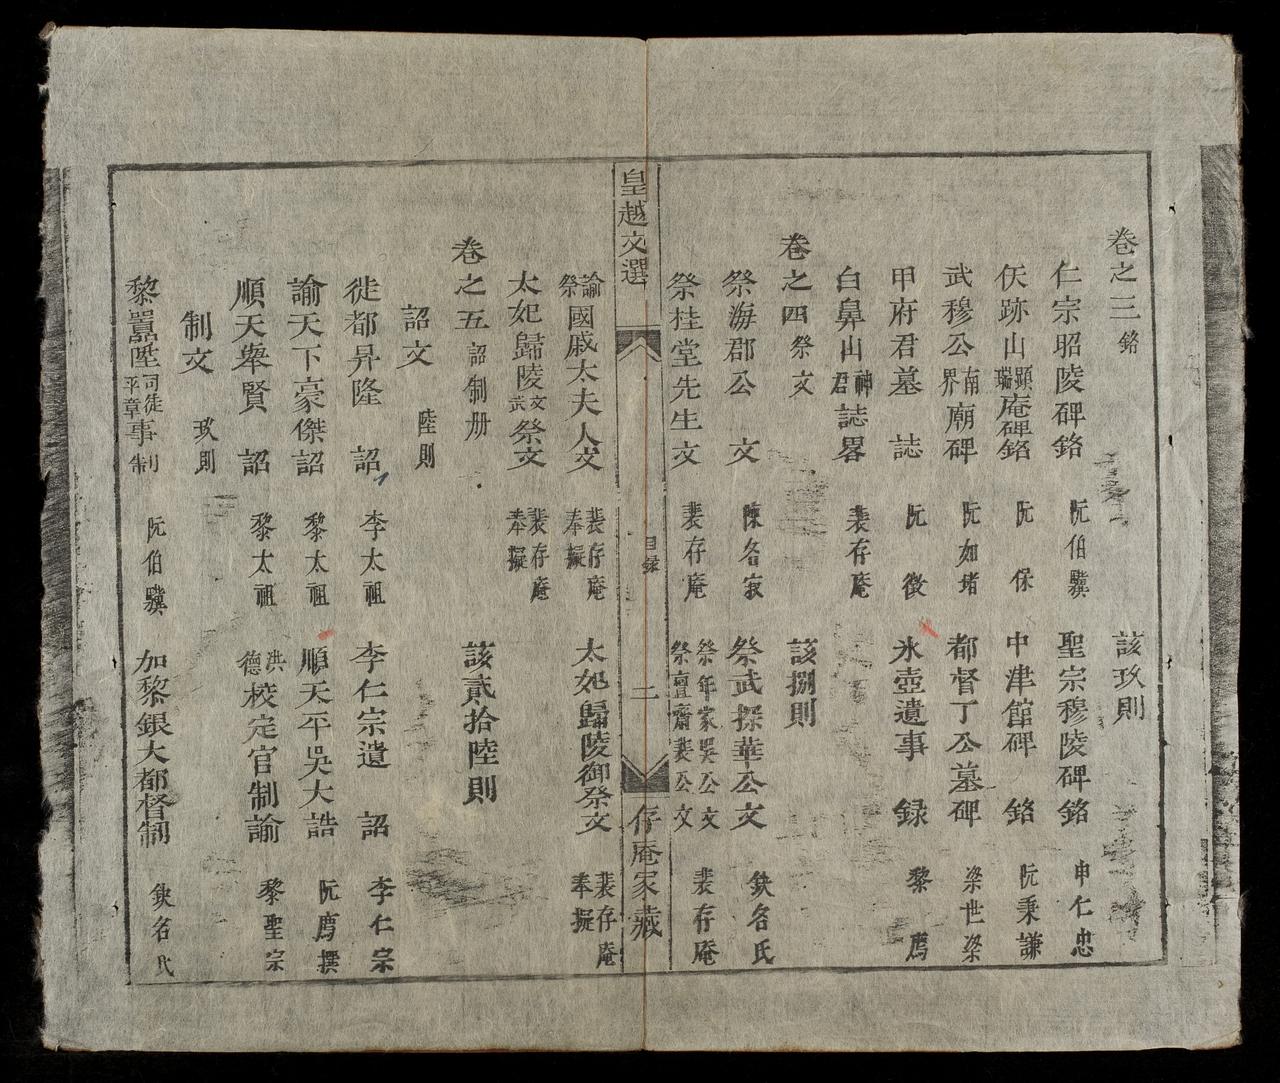 卷之三 銘 該玖則
仁宗昭陵碑銘 阮伯驥 聖宗穆陵碑銘 申仁忠
佚跡山顯瑞庵碑銘 阮保 中津館碑銘 阮秉謙
武穆公南界廟碑 阮如堵 都督丁公墓碑 梁世梁
甲府君墓誌 阮徵 氷壺遺事錄 黎廌
白鼻山神君誌畧 裴存庵
卷之四 祭文 該捌則
祭海郡公文 陳名寂 祭武探華公文 缺名氏
祭桂堂先生文 裴存庵 祭年家吳公文 祭亶齋裴公文 裴存庵
皇越文選 目錄 二 存庵家藏
諭祭國戚太夫人文 裴存庵奉擬 太妃歸陵御祭文 裴存庵奉擬
太妃歸陵文武祭文 裴存庵奉擬
卷之五 詔制册 該貳拾陸則
詔文 陸則
徙都昇隆詔 李太祖 李仁宗遺詔 李仁宗
諭天下豪傑詔 黎太祖 順天平吳大誥 阮廌撰
順天舉賢詔 黎太祖 洪德校定官制諭 黎聖宗
制文 玖則
黎嚣陞司徒平章事制 阮伯驥 加黎銀大都督制 缺名氏